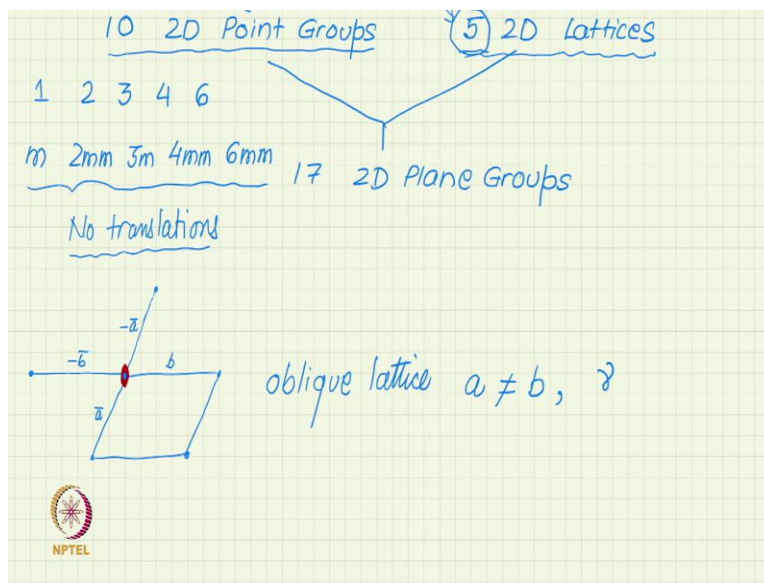 10 2D Point Groups
5 2D Lattices
1 2 3 4 6
m 2mm 3m 4mm 6mm
17 2D Plane Groups
No translations
-a̅
-b̅ b
a̅
oblique lattice a ≠ b, γ
NPTEL